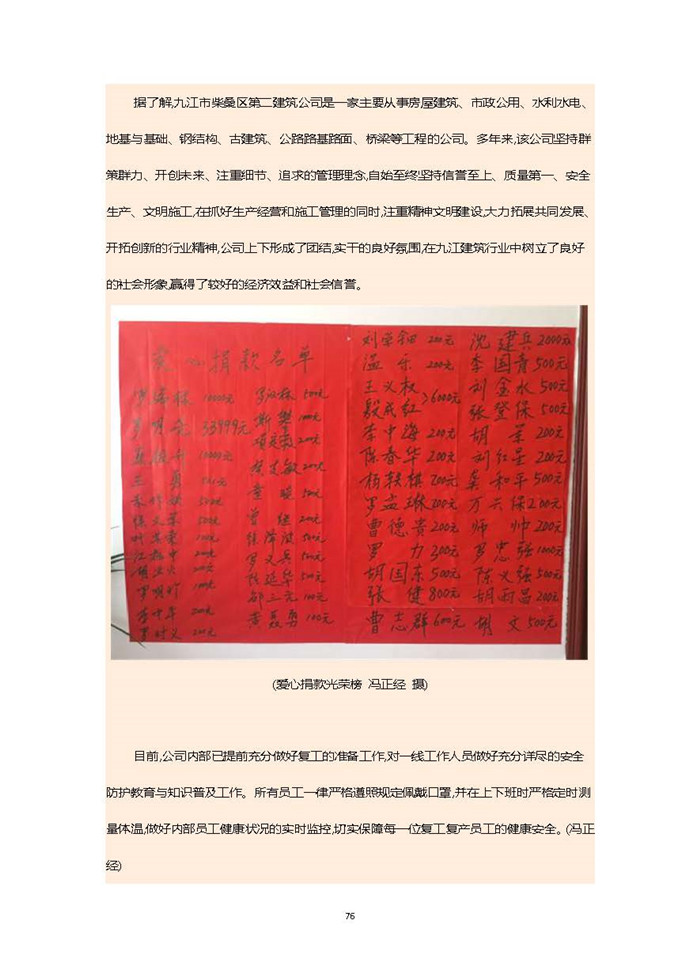 据了解,九江市柴桑区第二建筑公司是一家主要从事房屋建筑、市政公用、水利水电、
地基与基础、钢结构、古建筑、公路路基路面、桥梁等工程的公司。多年来,该公司坚持群
策群力、开创未来、注重细节、追求的管理理念,自始至终坚持信誉至上、质量第一、安全
生产、文明施工,在抓好生产经营和施工管理的同时,注重精神文明建设,大力拓展共同发展、
开拓创新的行业精神,公司上下形成了团结,实干的良好氛围,在九江建筑行业中树立了良好
的社会形象,赢得了较好的经济效益和社会信誉。
爱心捐款名单
10000元
33999元
10000元
500元
500元
100元
200元
100元
200元
200元
500元
斯攀 100元
200元
200元
童晓 500元
曾 200元
500元
罗义兵 500元
陈延华 500元
邵三元 100元
黄聂勇 100元
刘荣钿 200元
温乐 200元
王义权
殷成红 >6000元
李中海 200元
陈春华 200元
杨轶棋 200元
罗孟琳 200元
曹德贵 200元
罗力 200元
胡国东 500元
张健 800元
曹志群 600元
沈建兵 2000元
李国青 500元
刘金水 500元
张登保 500元
胡荣 200元
刘红星 200元
龚和平 500元
万云保 200元
师帅 200元
罗忠强 1000元
陈义强 500元
胡雨昌 200元
胡文 500元
(爱心捐款光荣榜 冯正经 摄)
目前,公司内部已提前充分做好复工的准备工作,对一线工作人员做好充分详尽的安全
防护教育与知识普及工作。所有员工一律严格遵照规定佩戴口罩,并在上下班时严格定时测
量体温,做好内部员工健康状况的实时监控,切实保障每一位复工复产员工的健康安全。(冯正
经)
76